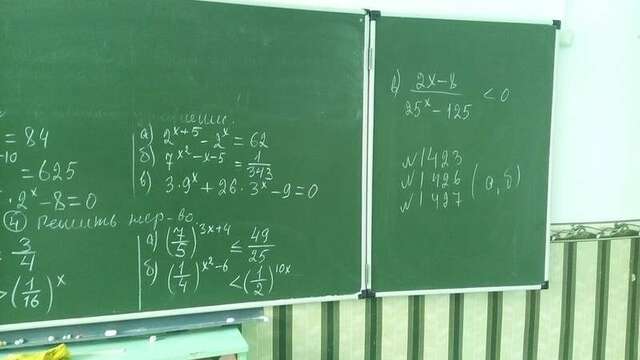 = 84
= 625
· 2^x - 8 = 0
а) 2^{x+5} - 2^x = 62
б) 7^{x^2-x-5} = 1/343
в) 3·9^x + 26·3^x - 9 = 0
④ Решить нер-во
3/4
> (1/16)^x
а) (7/5)^{3x+4} ≤ 49/25
б) (1/4)^{x^2-6} < (1/2)^{10x}
в) (2x-8)/(25^x-125) < 0
№1423
№1426 (а, б)
№1427